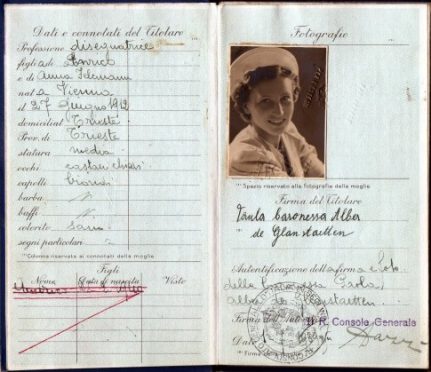 Dati e connotati del Titolare
Professione disegnatrice
figlia di Enrico
e di Anna
nata a Vienna
il 27 Giugno 1912
domiciliat Trieste
Prov. di Trieste
statura media
occhi castani chiari
capelli biondi
barba
baffi
colorito sano
segni particolari
(*) Colonna riservata ai connotati della moglie
Figli
Nome Data di nascita Visto
Fotografie
(*) Spazio riservato alla fotografia della moglie
Firma del Titolare
Paula Baronessa Alber
de Glanstaetten
Autenticazione della firma e foto
della Baronessa Paola
Alber de Glanstaetten
Firma dell'
Il R. Console Generale
Data
(*) Firma